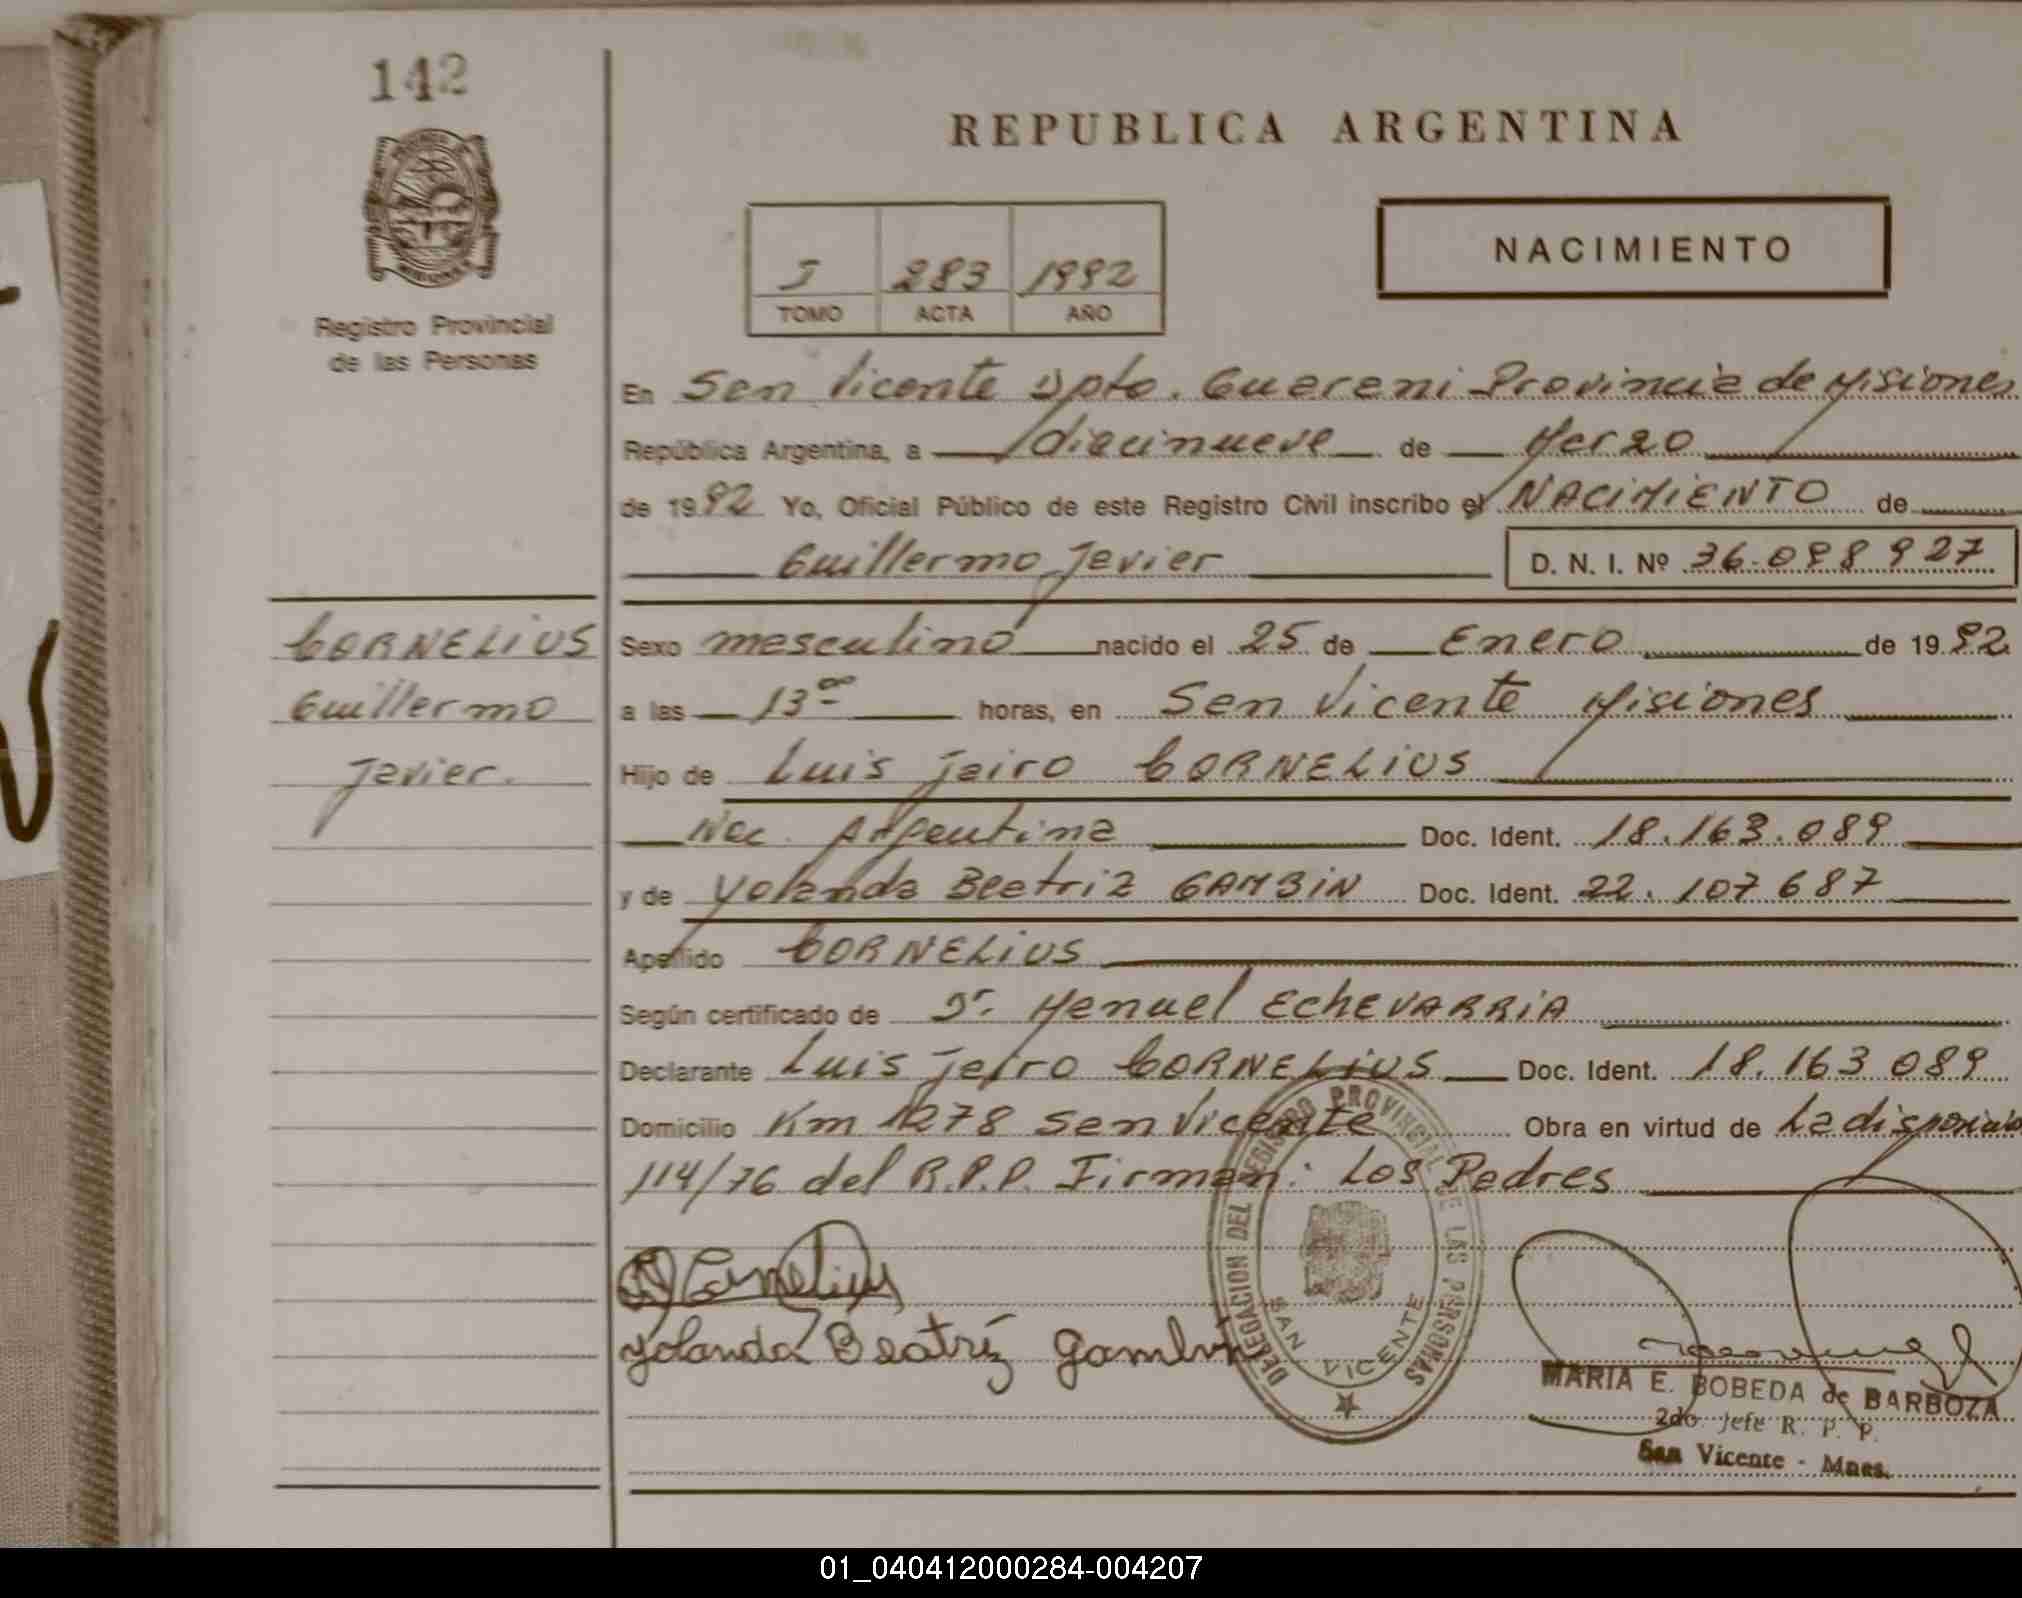 142
REPUBLICA ARGENTINA
Registro Provincial
de las Personas
I 283 1992
TOMO ACTA AÑO
NACIMIENTO
En San Vicente Dpto. Guarani Provincia de Misiones
República Argentina, a diecinueve de Marzo
de 1992 Yo, Oficial Público de este Registro Civil inscribo el NACIMIENTO de
Guillermo Javier D. N. I. Nº 36.098927
CORNELIUS
Guillermo
Javier.
Sexo masculino nacido el 25 de Enero de 1992
a las 13 oo horas, en San Vicente Misiones
Hijo de Luis Jairo CORNELIUS
Nac. Argentina Doc. Ident. 18.163.089
y de Yolanda Beatriz GAMBIN Doc. Ident. 22.107687
Apellido CORNELIUS
Según certificado de Dr. Manuel EchEVARRIA
Declarante Luis Jairo CORNELIUS Doc. Ident. 18.163089
Domicilio Km 1278 San Vicente Obra en virtud de La disposición
114/76 del R.P.P. Firman: Los Padres
Cornelius
Yolanda Beatríz Gambín
DELEGACION DEL REGISTRO PROVINCIAL DE LAS PERSONAS
SAN VICENTE
MARIA E. BOBEDA de BARBOZA
2do. Jefe R. P. P.
San Vicente - Mnes.
01_040412000284-004207